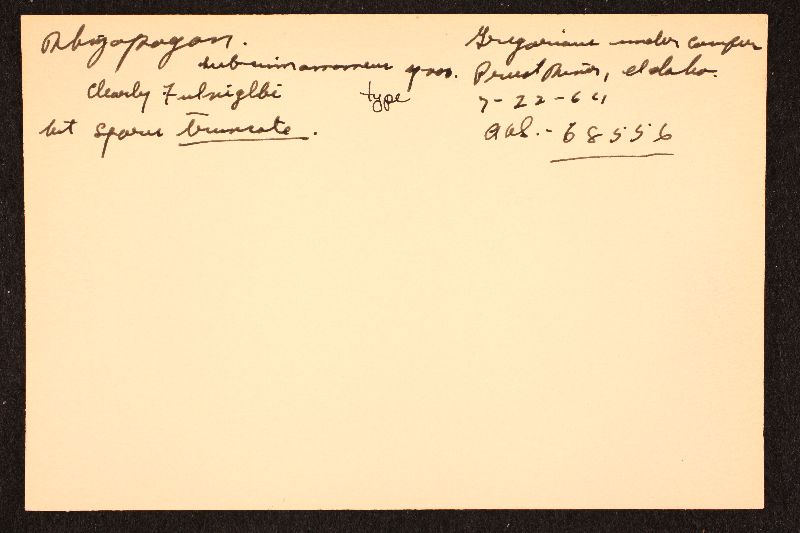 Rhizopogon.
subcinnamomeus
type
Clearly Fulviglebi
but spores truncate.
Gregarious under conifer
Priest River, Idaho.
7-22-64
AHS.- 68556